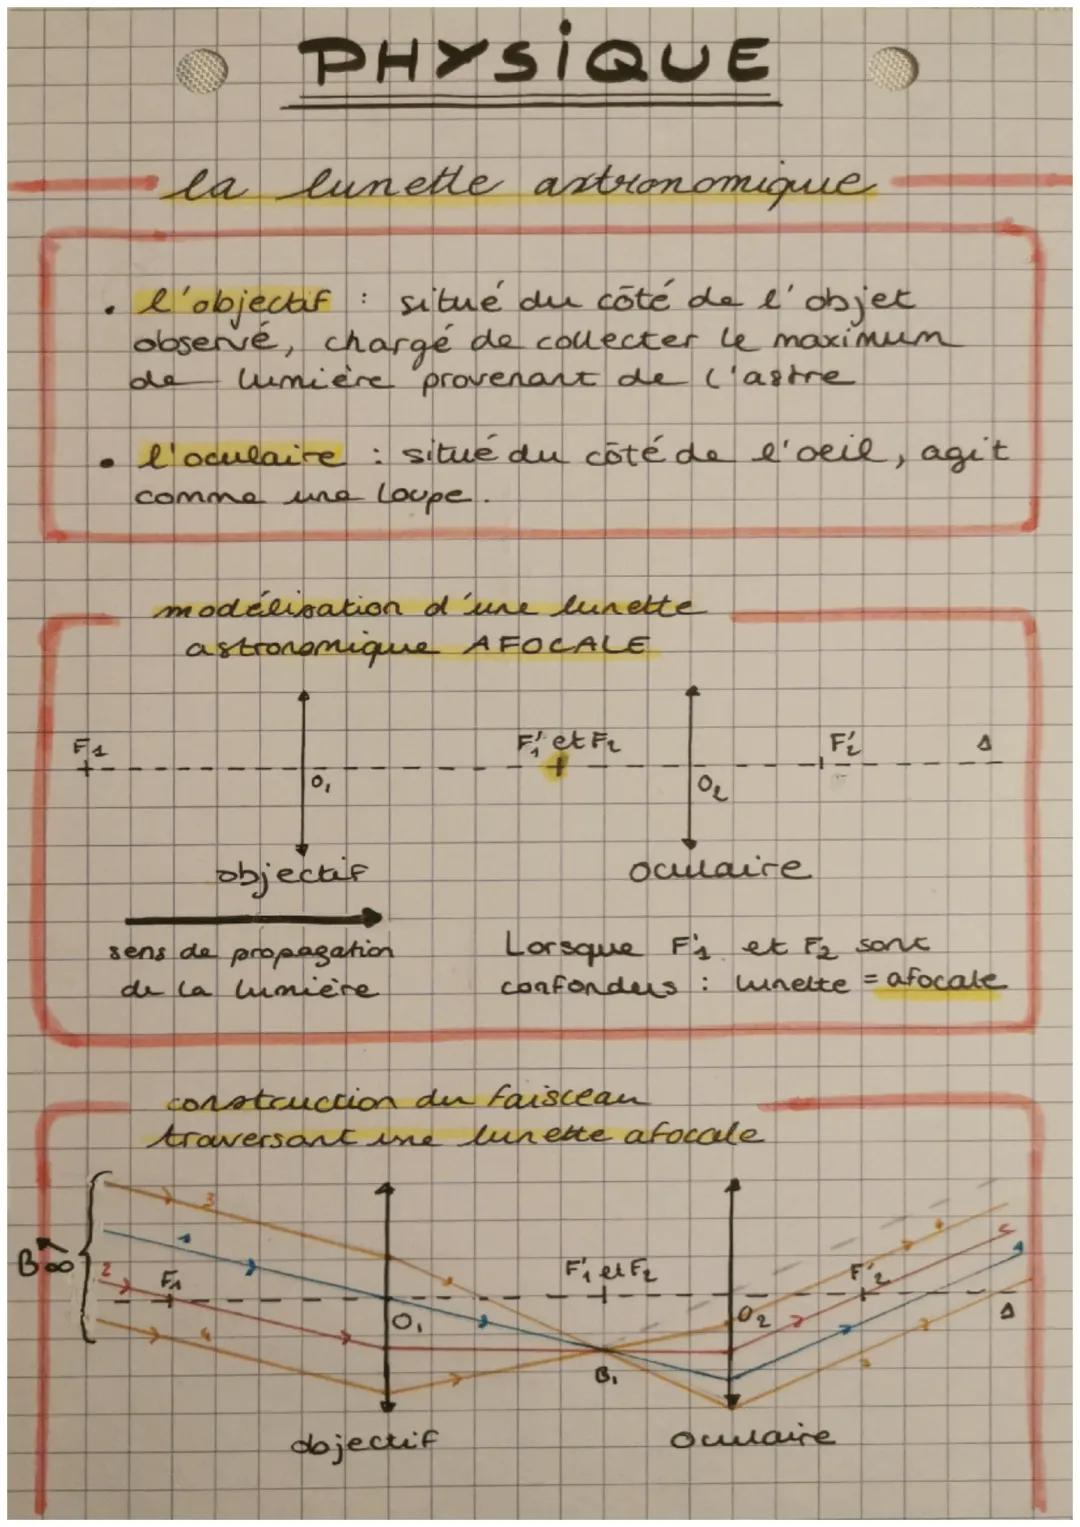 PHYSIQUE
la lunette astronomique
• l'objectif : situé du côté de l'objet
observé, chargé de collecter le maximum
de lumière provenant de l'astre
• l'oculaire : situé du côté de l'oeil, agit
comme une loupe.
modélisation d'une lunette
astronomique AFOCALE
F1 F'1 et F2 F'2 Δ
O1 O2
objectif oculaire
sens de propagation
de la lumière
Lorsque F'1 et F2 sont
confondus : lunette = afocale
construction du faisceau
traversant une lunette afocale
3
1
B∞ 2 F1 F'1 et F2 F'2
4 O1 O2 Δ
B1
objectif oculaire